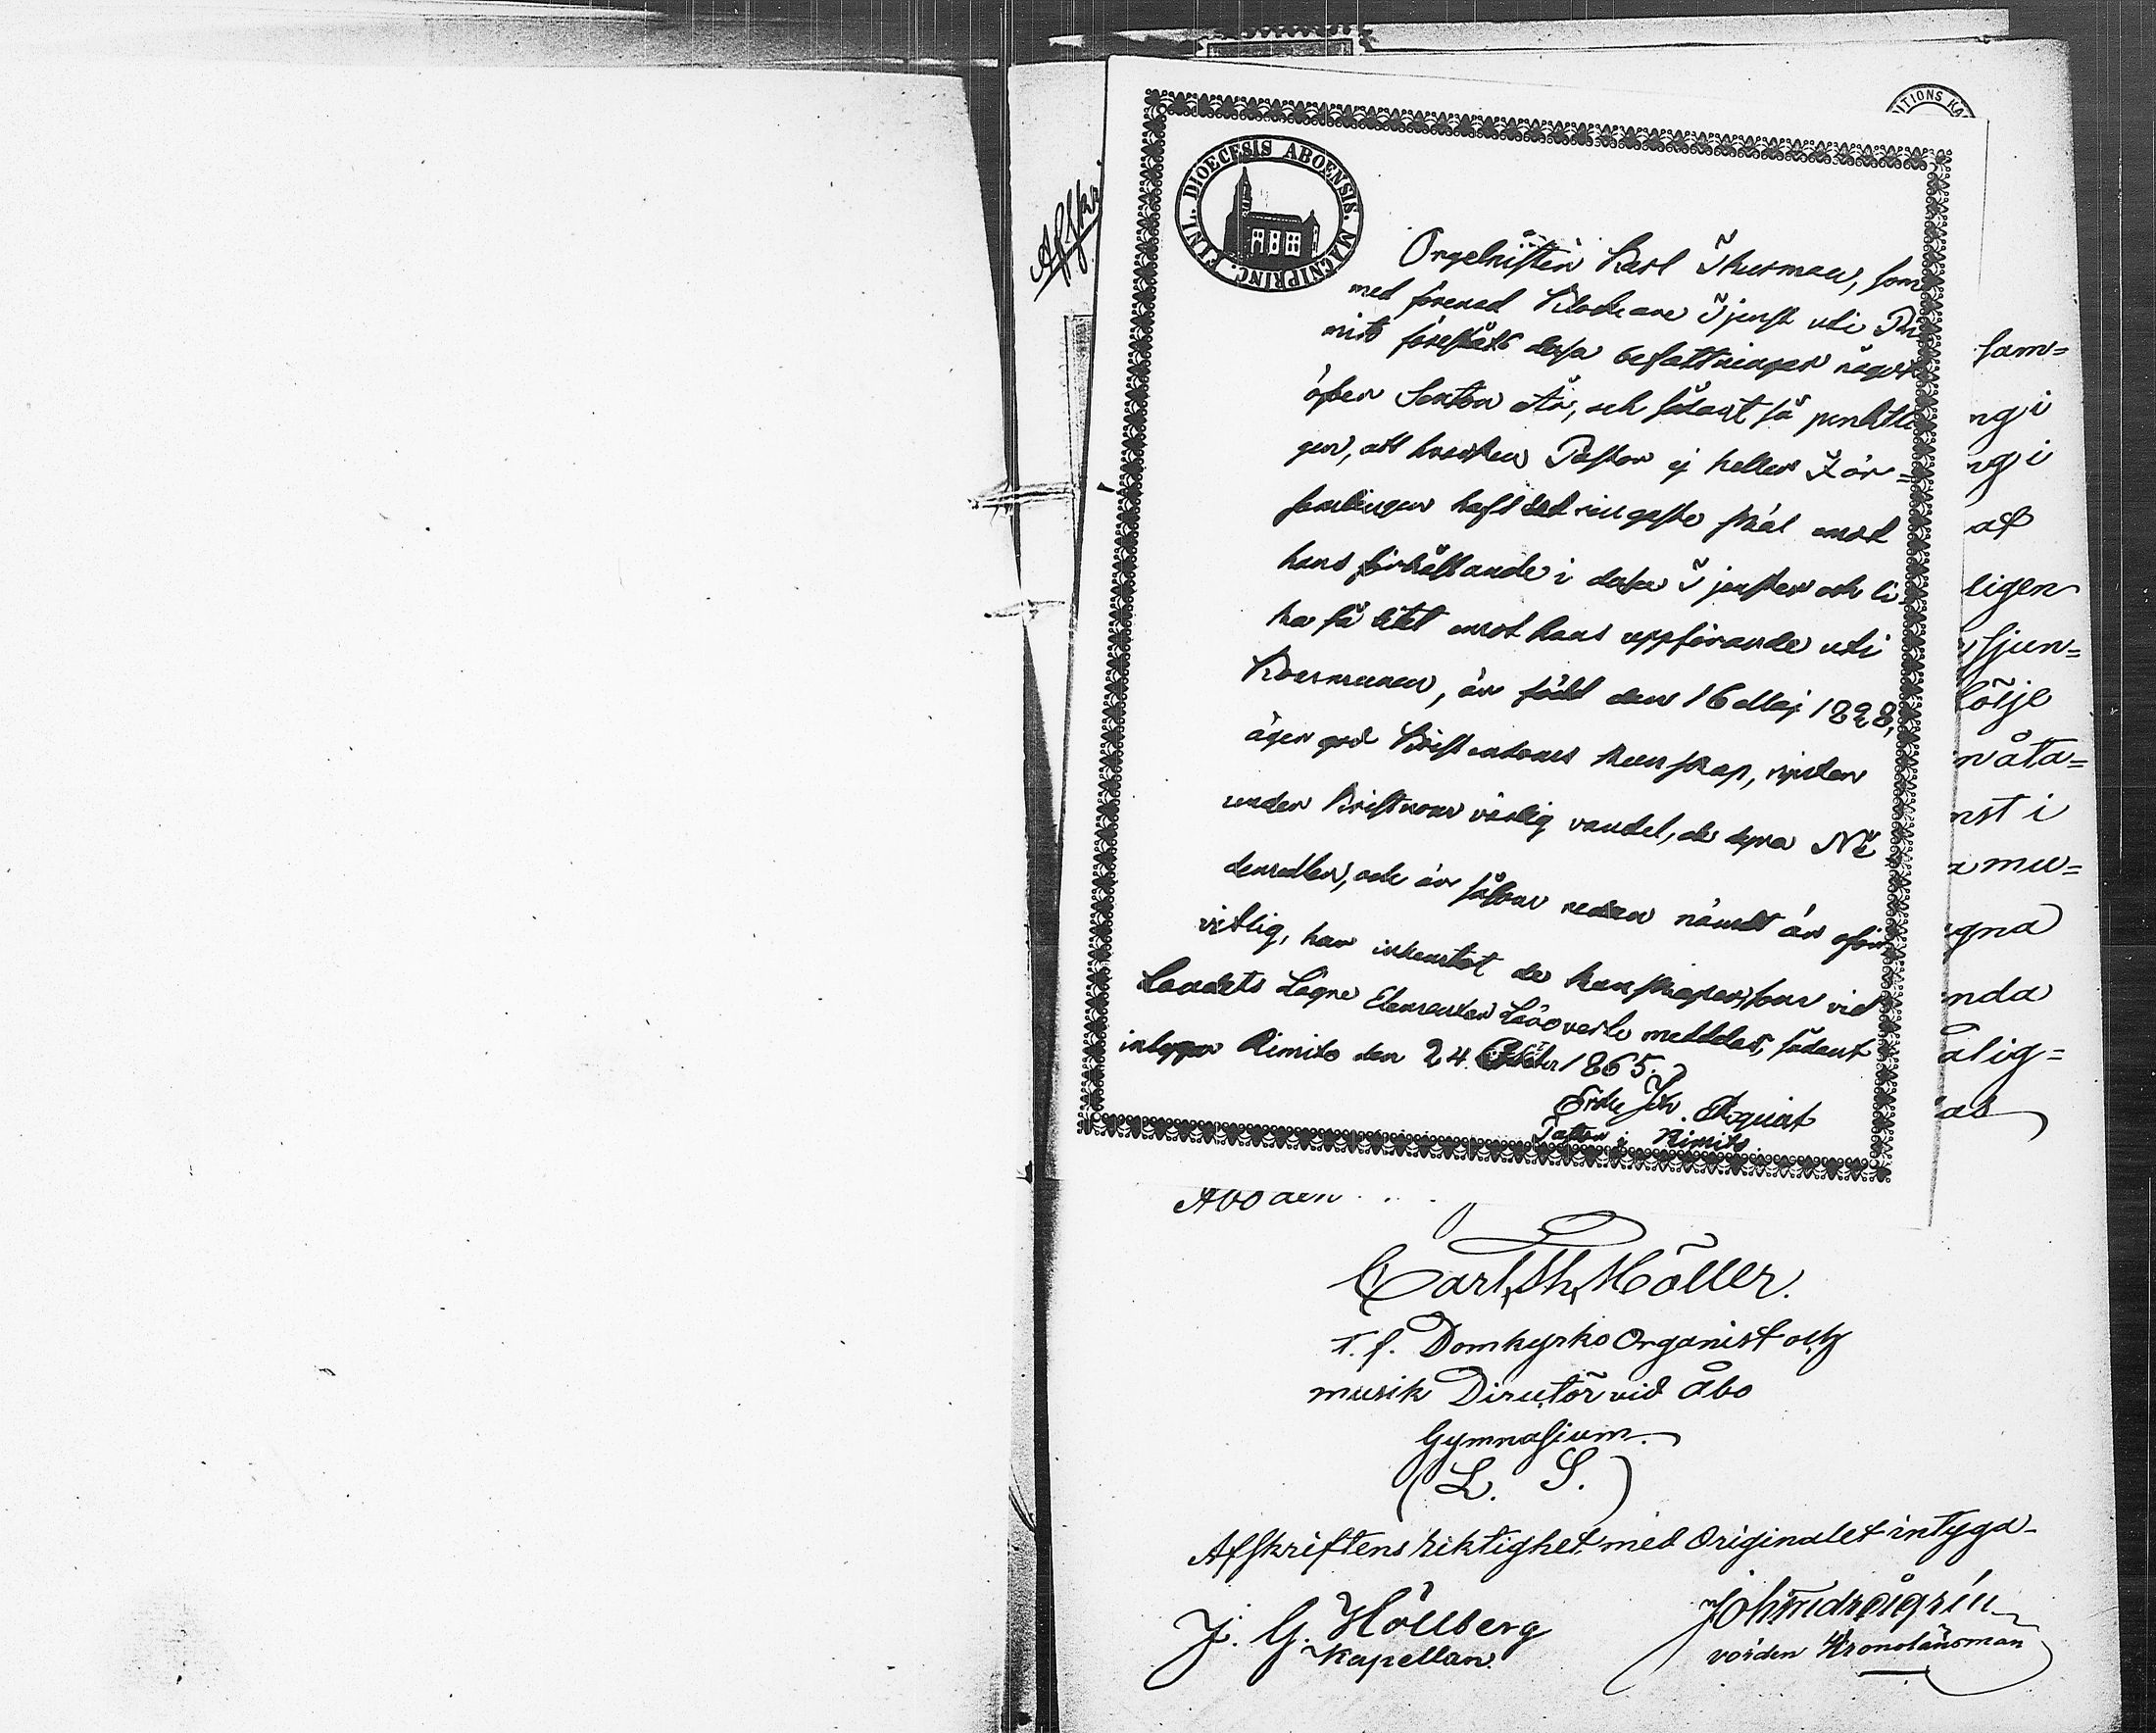 Afskri
ITIONS KA
FINL. DIOECESIS ABOENSIS. MAGNIPRINC.
Orgelnisten Karl Thurman, som
med förenad Klockare Tjenst uti Ri
mito förestått dessa befattningar något
öfver Sexton År, och sådant så punktli
gen, att hvarken Pastor ej heller För-
samlingen haft det ringaste skäl emot
hans förhållande i dessa Tjenster och li
ka så litet emot hans uppförande uti
Kommunen, är född den 16 Maj 1828,
äger god Kristendoms kunskap,
under Kristnom värdig vandel, de dyra Nå
demedlen, och är såsom redan nämdt är oför
vitlig, har inhemtat de kunskaper, som vid
Landets Lägre Elementar Läroverk meddelas, sådant
intygar Rimito den 24 1865.
Joh.
Pastor i Rimito.
sam=
ng i
ng i
af
ligen
sjun=
löije
nåta=
nst i
mu=
gna
nda
alig=
as
Åbo den
Carl Th. Möller.
T. f. Domkyrko Organist och
musik Directör vid Åbo
Gymnasium.
(L. S.)
Afskriftens riktighet med Originalet intyga
J. G. Höllberg
Kapellan.
vorden Kronolänsman